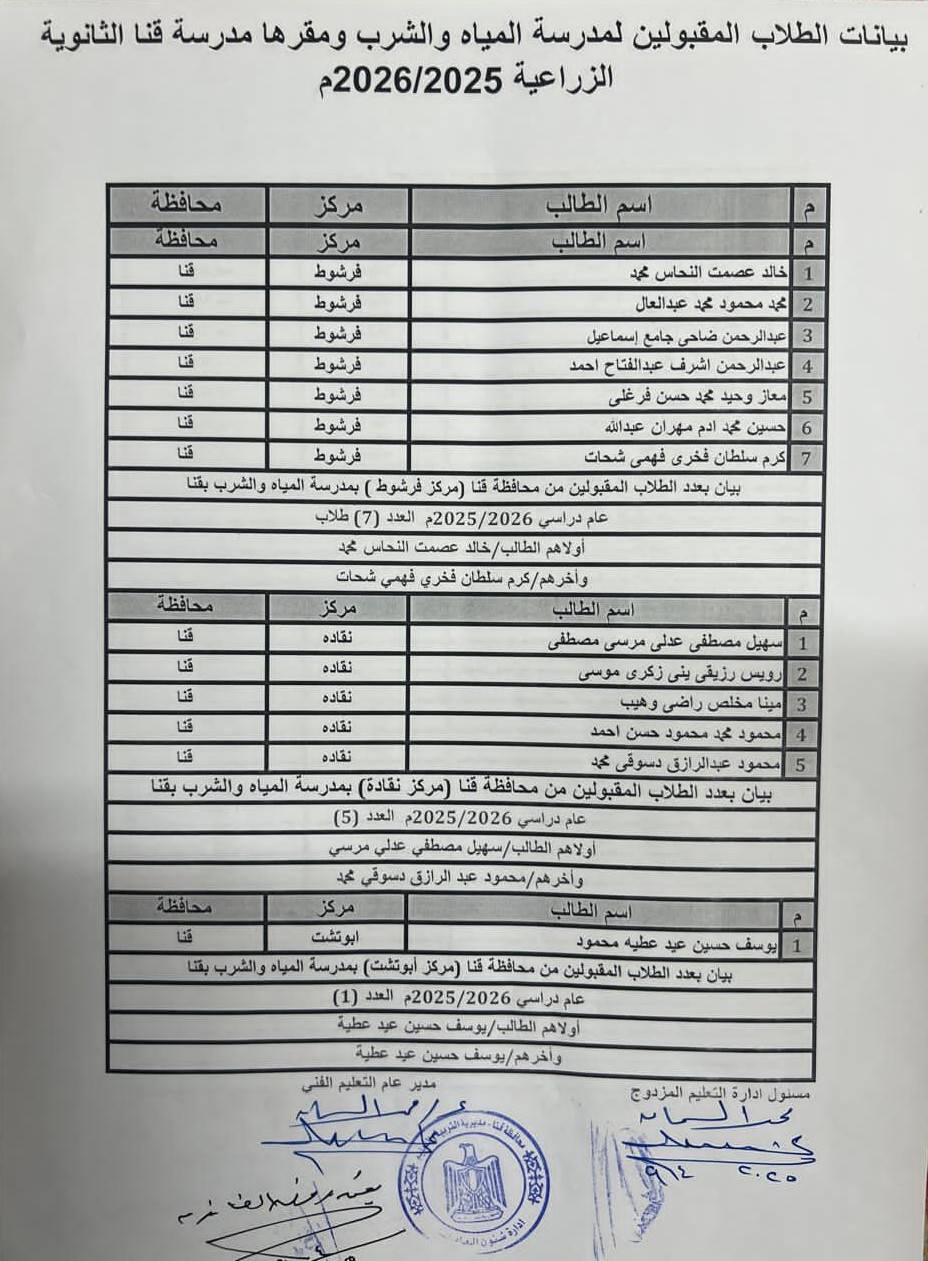 بيانات الطلاب المقبولين لمدرسة المياه والشرب ومقرها مدرسة قنا الثانوية
الزراعية 2026/2025م
م اسم الطالب مركز محافظة
م اسم الطالب مركز محافظة
1 خالد عصمت النحاس محمد فرشوط قنا
2 محمد محمود محمد عبدالعال فرشوط قنا
3 عبدالرحمن ضاحى جامع إسماعيل فرشوط قنا
4 عبدالرحمن اشرف عبدالفتاح احمد فرشوط قنا
5 معاز وحيد محمد حسن فرغلى فرشوط قنا
6 حسين محمد ادم مهران عبدالله فرشوط قنا
7 كرم سلطان فخرى فهمى شحات فرشوط قنا
بيان بعدد الطلاب المقبولين من محافظة قنا (مركز فرشوط ) بمدرسة المياه والشرب بقنا
عام دراسي 2025/2026م العدد (7) طلاب
أولاهم الطالب/خالد عصمت النحاس محمد
وأخرهم/كرم سلطان فخري فهمي شحات
م اسم الطالب مركز محافظة
1 سهيل مصطفى عدلى مرسى مصطفى نقاده قنا
2 رويس رزيقى ينى زكرى موسى نقاده قنا
3 مينا مخلص راضى وهيب نقاده قنا
4 محمود محمد محمود حسن احمد نقاده قنا
5 محمود عبدالرازق دسوقى محمد نقاده قنا
بيان بعدد الطلاب المقبولين من محافظة قنا (مركز نقادة) بمدرسة المياه والشرب بقنا
عام دراسي 2025/2026م العدد (5)
أولاهم الطالب/سهيل مصطفي عدلي مرسي
وأخرهم/محمود عبد الرازق دسوقي محمد
م اسم الطالب مركز محافظة
1 يوسف حسين عيد عطيه محمود ابوتشت قنا
بيان بعدد الطلاب المقبولين من محافظة قنا (مركز أبوتشت) بمدرسة المياه والشرب بقنا
عام دراسي 2025/2026م العدد (1)
أولاهم الطالب/يوسف حسين عيد عطية
وأخرهم/يوسف حسين عيد عطية
مسئول ادارة التعليم المزدوج
مدير عام التعليم الفني
محافظة قنا - مديرية التربية
ادارة شئون
٢٠٢٥ ٩/١٤